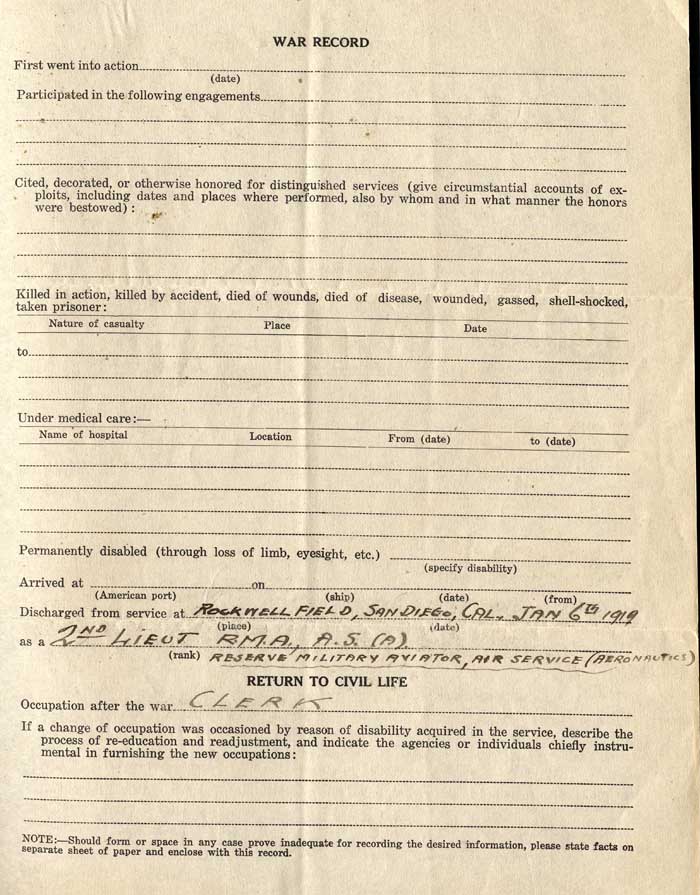 WAR RECORD
First went into action
(date)
Participated in the following engagements
Cited, decorated, or otherwise honored for distinguished services (give circumstantial accounts of ex-
ploits, including dates and places where performed, also by whom and in what manner the honors
were bestowed) :
Killed in action, killed by accident, died of wounds, died of disease, wounded, gassed, shell-shocked,
taken prisoner:
Nature of casualty Place Date
to
Under medical care:—
Name of hospital Location From (date) to (date)
Permanently disabled (through loss of limb, eyesight, etc.)
(specify disability)
Arrived at on
(American port) (ship) (date) (from)
Discharged from service at ROCKWELL FIELD, SAN DIEGO, CAL. JAN 6TH 1919
(place) (date)
as a 2ND LIEUT R.M.A., A.S. (A)
(rank) RESERVE MILITARY AVIATOR, AIR SERVICE (AERONAUTICS)
RETURN TO CIVIL LIFE
Occupation after the war CLERK
If a change of occupation was occasioned by reason of disability acquired in the service, describe the
process of re-education and readjustment, and indicate the agencies or individuals chiefly instru-
mental in furnishing the new occupations:
NOTE:—Should form or space in any case prove inadequate for recording the desired information, please state facts on
separate sheet of paper and enclose with this record.